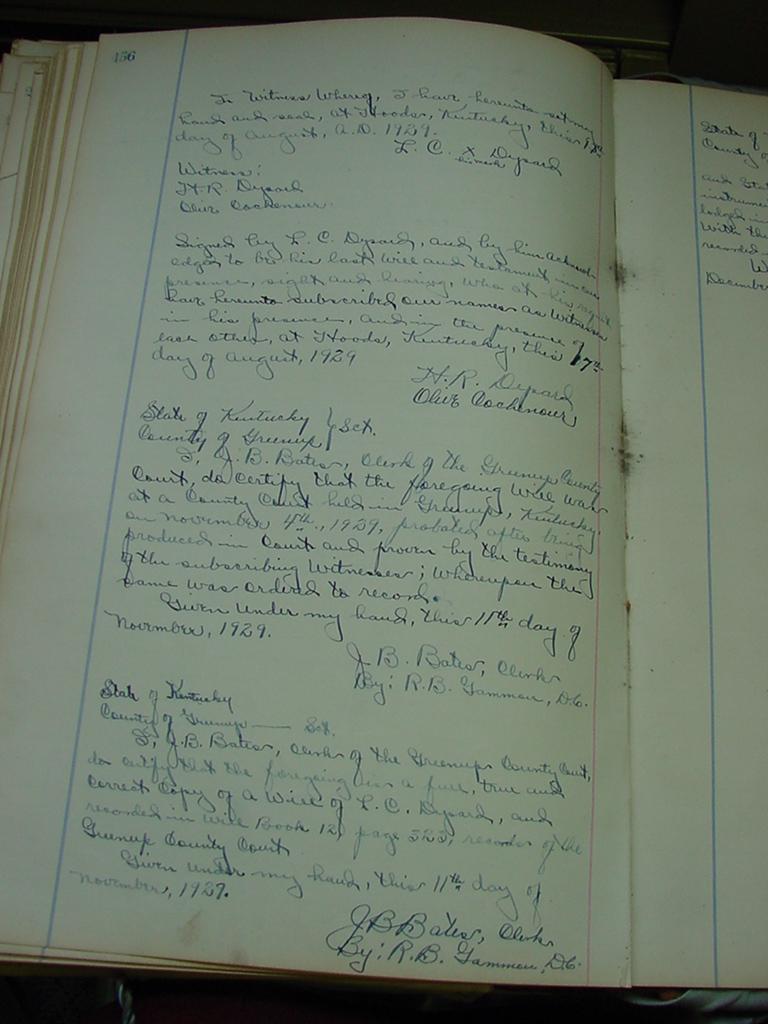 456
In Witness Whereof, I have hereunto set my
hand and seal, at Hoods, Kentucky, this 17th
day of August, A.D. 1929.
L. C. X Dysard
his mark
Witness:
H.R. Dysard
Olive Cochenour
Signed by L. C. Dysard, and by him acknowl-
edged to be his last will and testament in our
presence, sight and hearing, who at his request
have hereunto subscribed our names as Witnesses
in his presence, and in the presence of
each other, at Hoods, Kentucky, this 17th
day of August, 1929
H.R. Dysard
Olive Cochenour
State of Kentucky } Sct.
County of Greenup
I, J. B. Bates, Clerk of the Greenup County
Court, do certify that the foregoing Will was
at a County Court held in Greenup, Kentucky,
on November 4th, 1929, probated after being
produced in Court and proven by the testimony
of the subscribing Witnesses; whereupon the
same was ordered to record.
Given under my hand, this 11th day of
November, 1929.
J. B. Bates, Clerk
By: R.B. Gammon, D.C.
State of Kentucky
County of Greenup —— Sct.
I, J.B. Bates, Clerk of the Greenup County Court,
do certify that the foregoing is a full, true and
correct Copy of a Will of L. C. Dysard, and
recorded in Will Book 12, page 323, records of the
Greenup County Court
Given under my hand, this 11th day of
November, 1929.
J B Bates, Clerk
By: R.B. Gammon, D.C.
State of
County of
and Stat
instrume
lodged in
With the
recorded
W
December